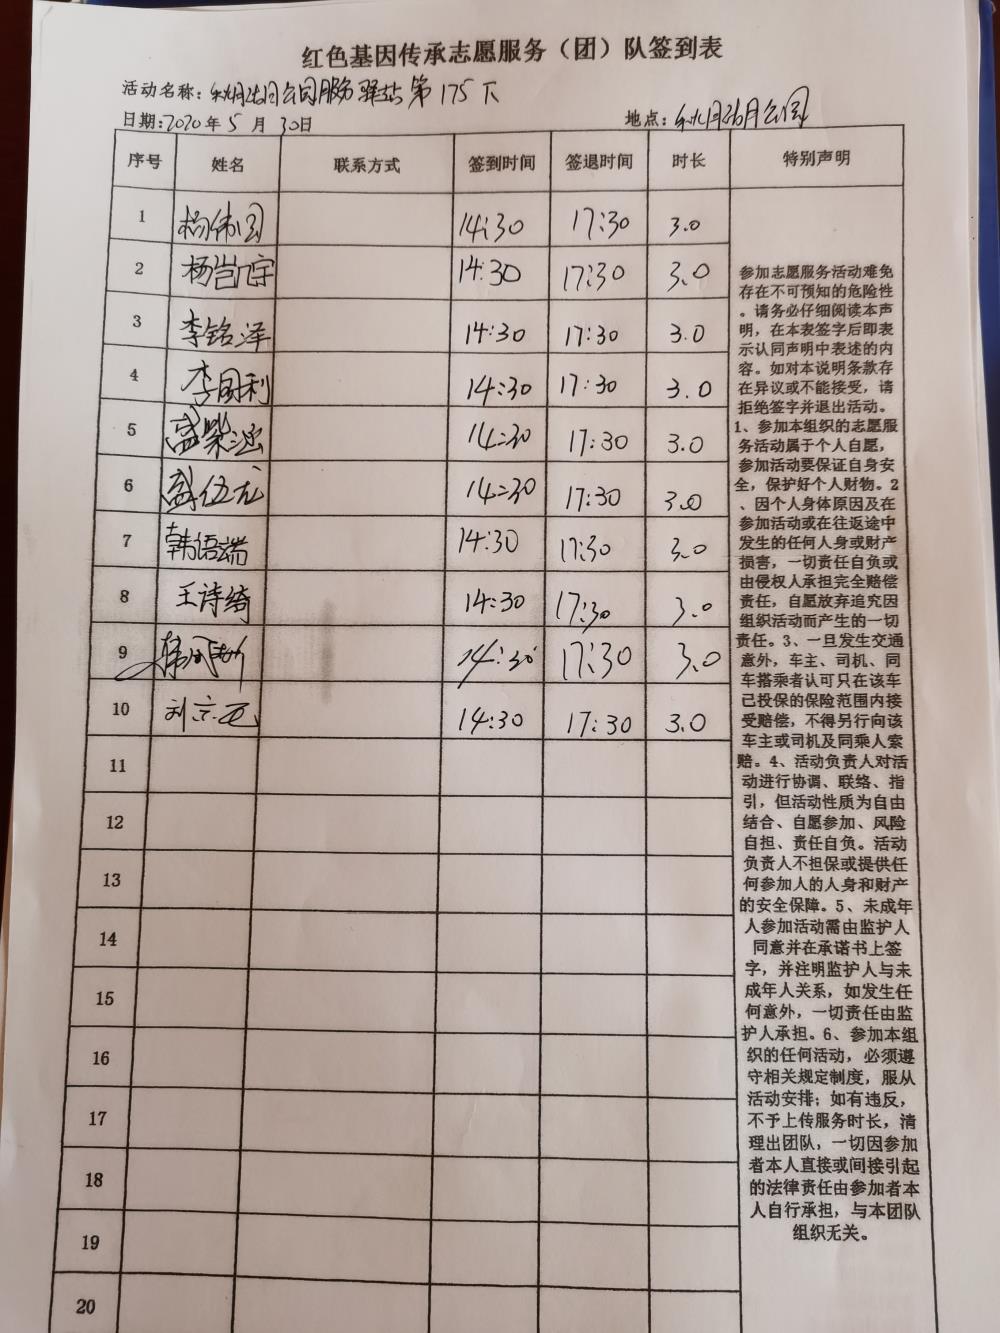 红色基因传承志愿服务（团）队签到表
活动名称：公园服务驿站第175下
日期:2020年5月30日 地点：公园
序号 姓名 联系方式 签到时间 签退时间 时长 特别声明
1 杨伟国 14:30 17:30 3.0
2 杨岂宇 14:30 17:30 3.0
3 李铭泽 14:30 17:30 3.0
4 李国利 14:30 17:30 3.0
5 14:30 17:30 3.0
6 盛伍龙 14:30 17:30 3.0
7 韩语端 14:30 17:30 3.0
8 王诗绮 14:30 17:30 3.0
9 14:30 17:30 3.0
10 刘京西 14:30 17:30 3.0
11
12
13
14
15
16
17
18
19
20
参加志愿服务活动难免
存在不可预知的危险性
。请务必仔细阅读本声
明，在本表签字后即表
示认同声明中表述的内
容。如对本说明条款存
在异议或不能接受，请
拒绝签字并退出活动。
1、参加本组织的志愿服
务活动属于个人自愿，
参加活动要保证自身安
全，保护好个人财物。2
、因个人身体原因及在
参加活动或在往返途中
发生的任何人身或财产
损害，一切责任自负或
由侵权人承担完全赔偿
责任，自愿放弃追究因
组织活动而产生的一切
责任。3、一旦发生交通
意外，车主、司机、同
车搭乘者认可只在该车
已投保的保险范围内接
受赔偿，不得另行向该
车主或司机及同乘人索
赔。4、活动负责人对活
动进行协调、联络、指
引，但活动性质为自由
结合、自愿参加、风险
自担、责任自负。活动
负责人不担保或提供任
何参加人的人身和财产
的安全保障。5、未成年
人参加活动需由监护人
同意并在承诺书上签
字，并注明监护人与未
成年人关系，如发生任
何意外，一切责任由监
护人承担。6、参加本组
织的任何活动，必须遵
守相关规定制度，服从
活动安排；如有违反，
不予上传服务时长，清
理出团队，一切因参加
者本人直接或间接引起
的法律责任由参加者本
人自行承担，与本团队
组织无关。